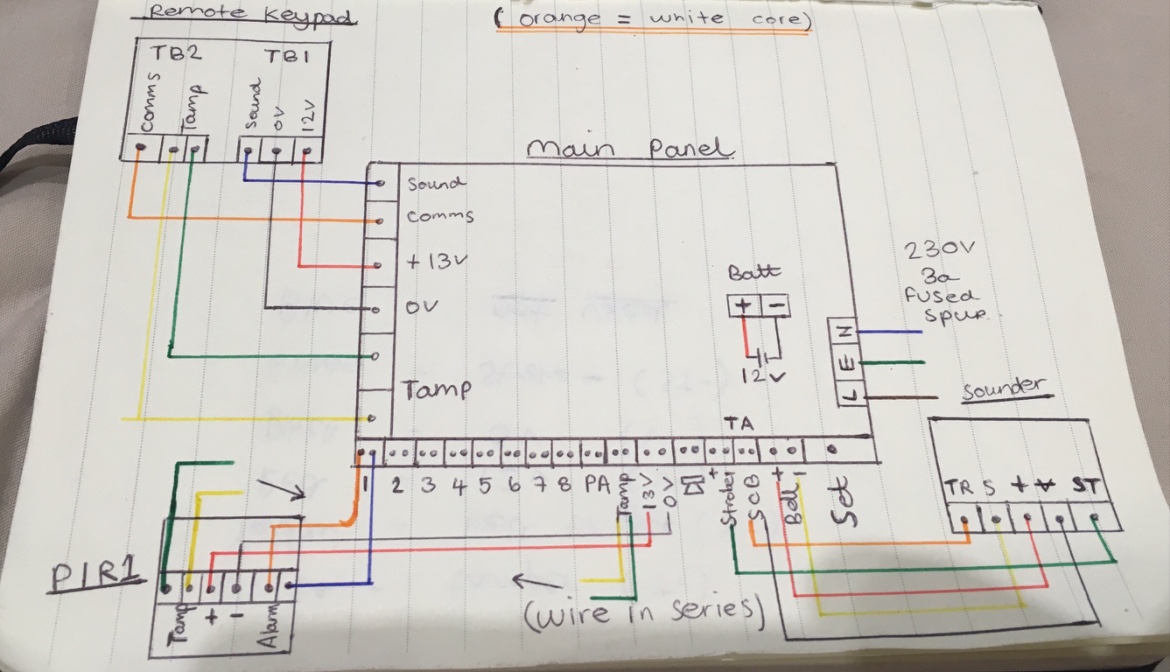 Remote Keypad
( orange = white core)
TB2 TB1
Comms
Tamp
Sound
0V
12V
Main Panel
Sound
Comms
+ 13v
0V
Tamp
Batt
+ -
12 v
230V
3a
Fused
Spur.
N
E
L
Sounder
TA
1 2 3 4 5 6 7 8 PA Tamp 13V 0V + Strobe - SCB + Bell - Set
TR S + ST
PIR1
Tamp + - Alarm
(wire in series)